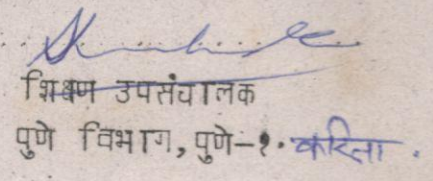 शिक्षण उपसंचालक
पुणे विभाग, पुणे-१. करिता.